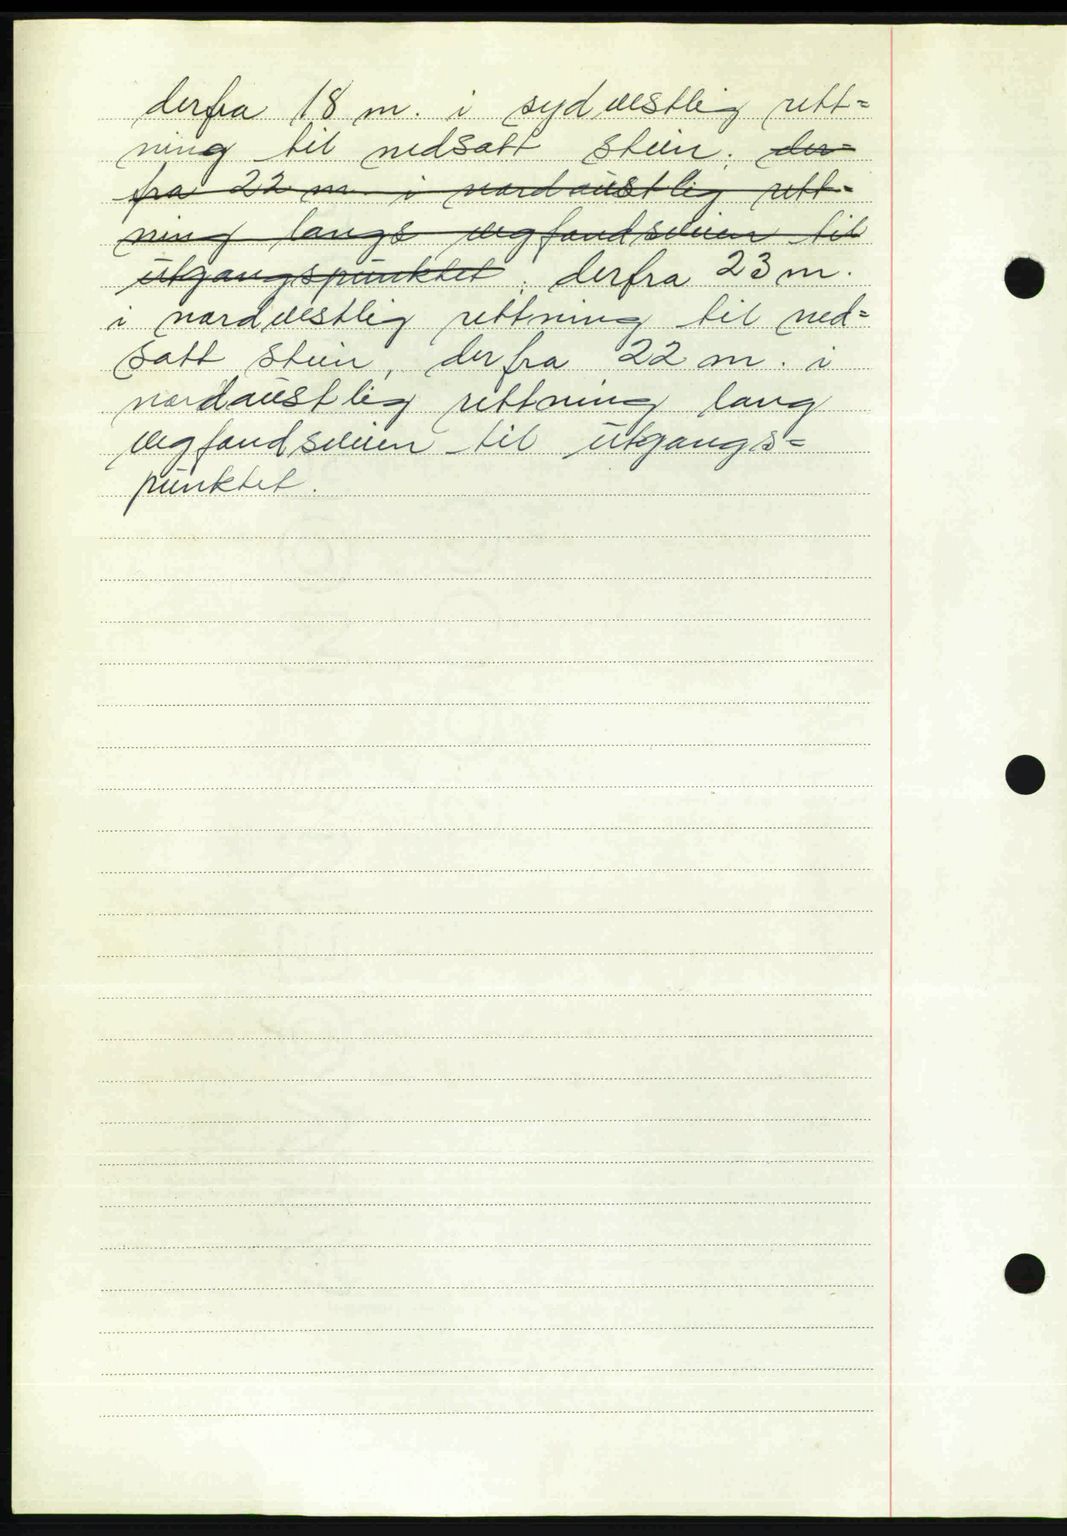 derfra 18 m. i sydvestlig rett=
ning til nedsatt stein. der=
fra 22 m. i nordaustlig rett=
ning langs vegfondsveien til
utgangspunktet. derfra 23 m.
i nordvestlig rettning til ned=
satt stein, derfra 22 m. i
nordaustlig rettning lang
vegfondsveien til utgangs=
punktet.